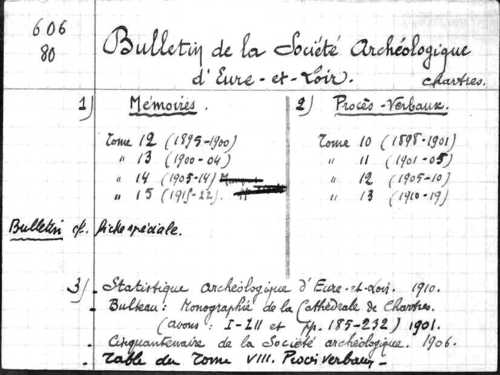 606
80
Bulletin de la Société Archéologique
d'Eure-et-Loir.
Chartres.
1) Mémoires.
Tome 12 (1895-1900)
" 13 (1900-04)
" 14 (1905-14)
" 15 (1915-22).
2) Procès-Verbaux.
Tome 10 (1898-1901)
" 11 (1901-05)
" 12 (1905-10)
" 13 (1910-19)
Bulletin cf. fiche spéciale.
3) - Statistique archéologique d'Eure-et-Loir. 1910.
- Bulteau: Monographie de la Cathédrale de Chartres.
(avons: I-III et pp. 185-232) 1901.
- Cinquantenaire de la Société archéologique. 1906.
- Table du Tome VIII. Procès verbaux -